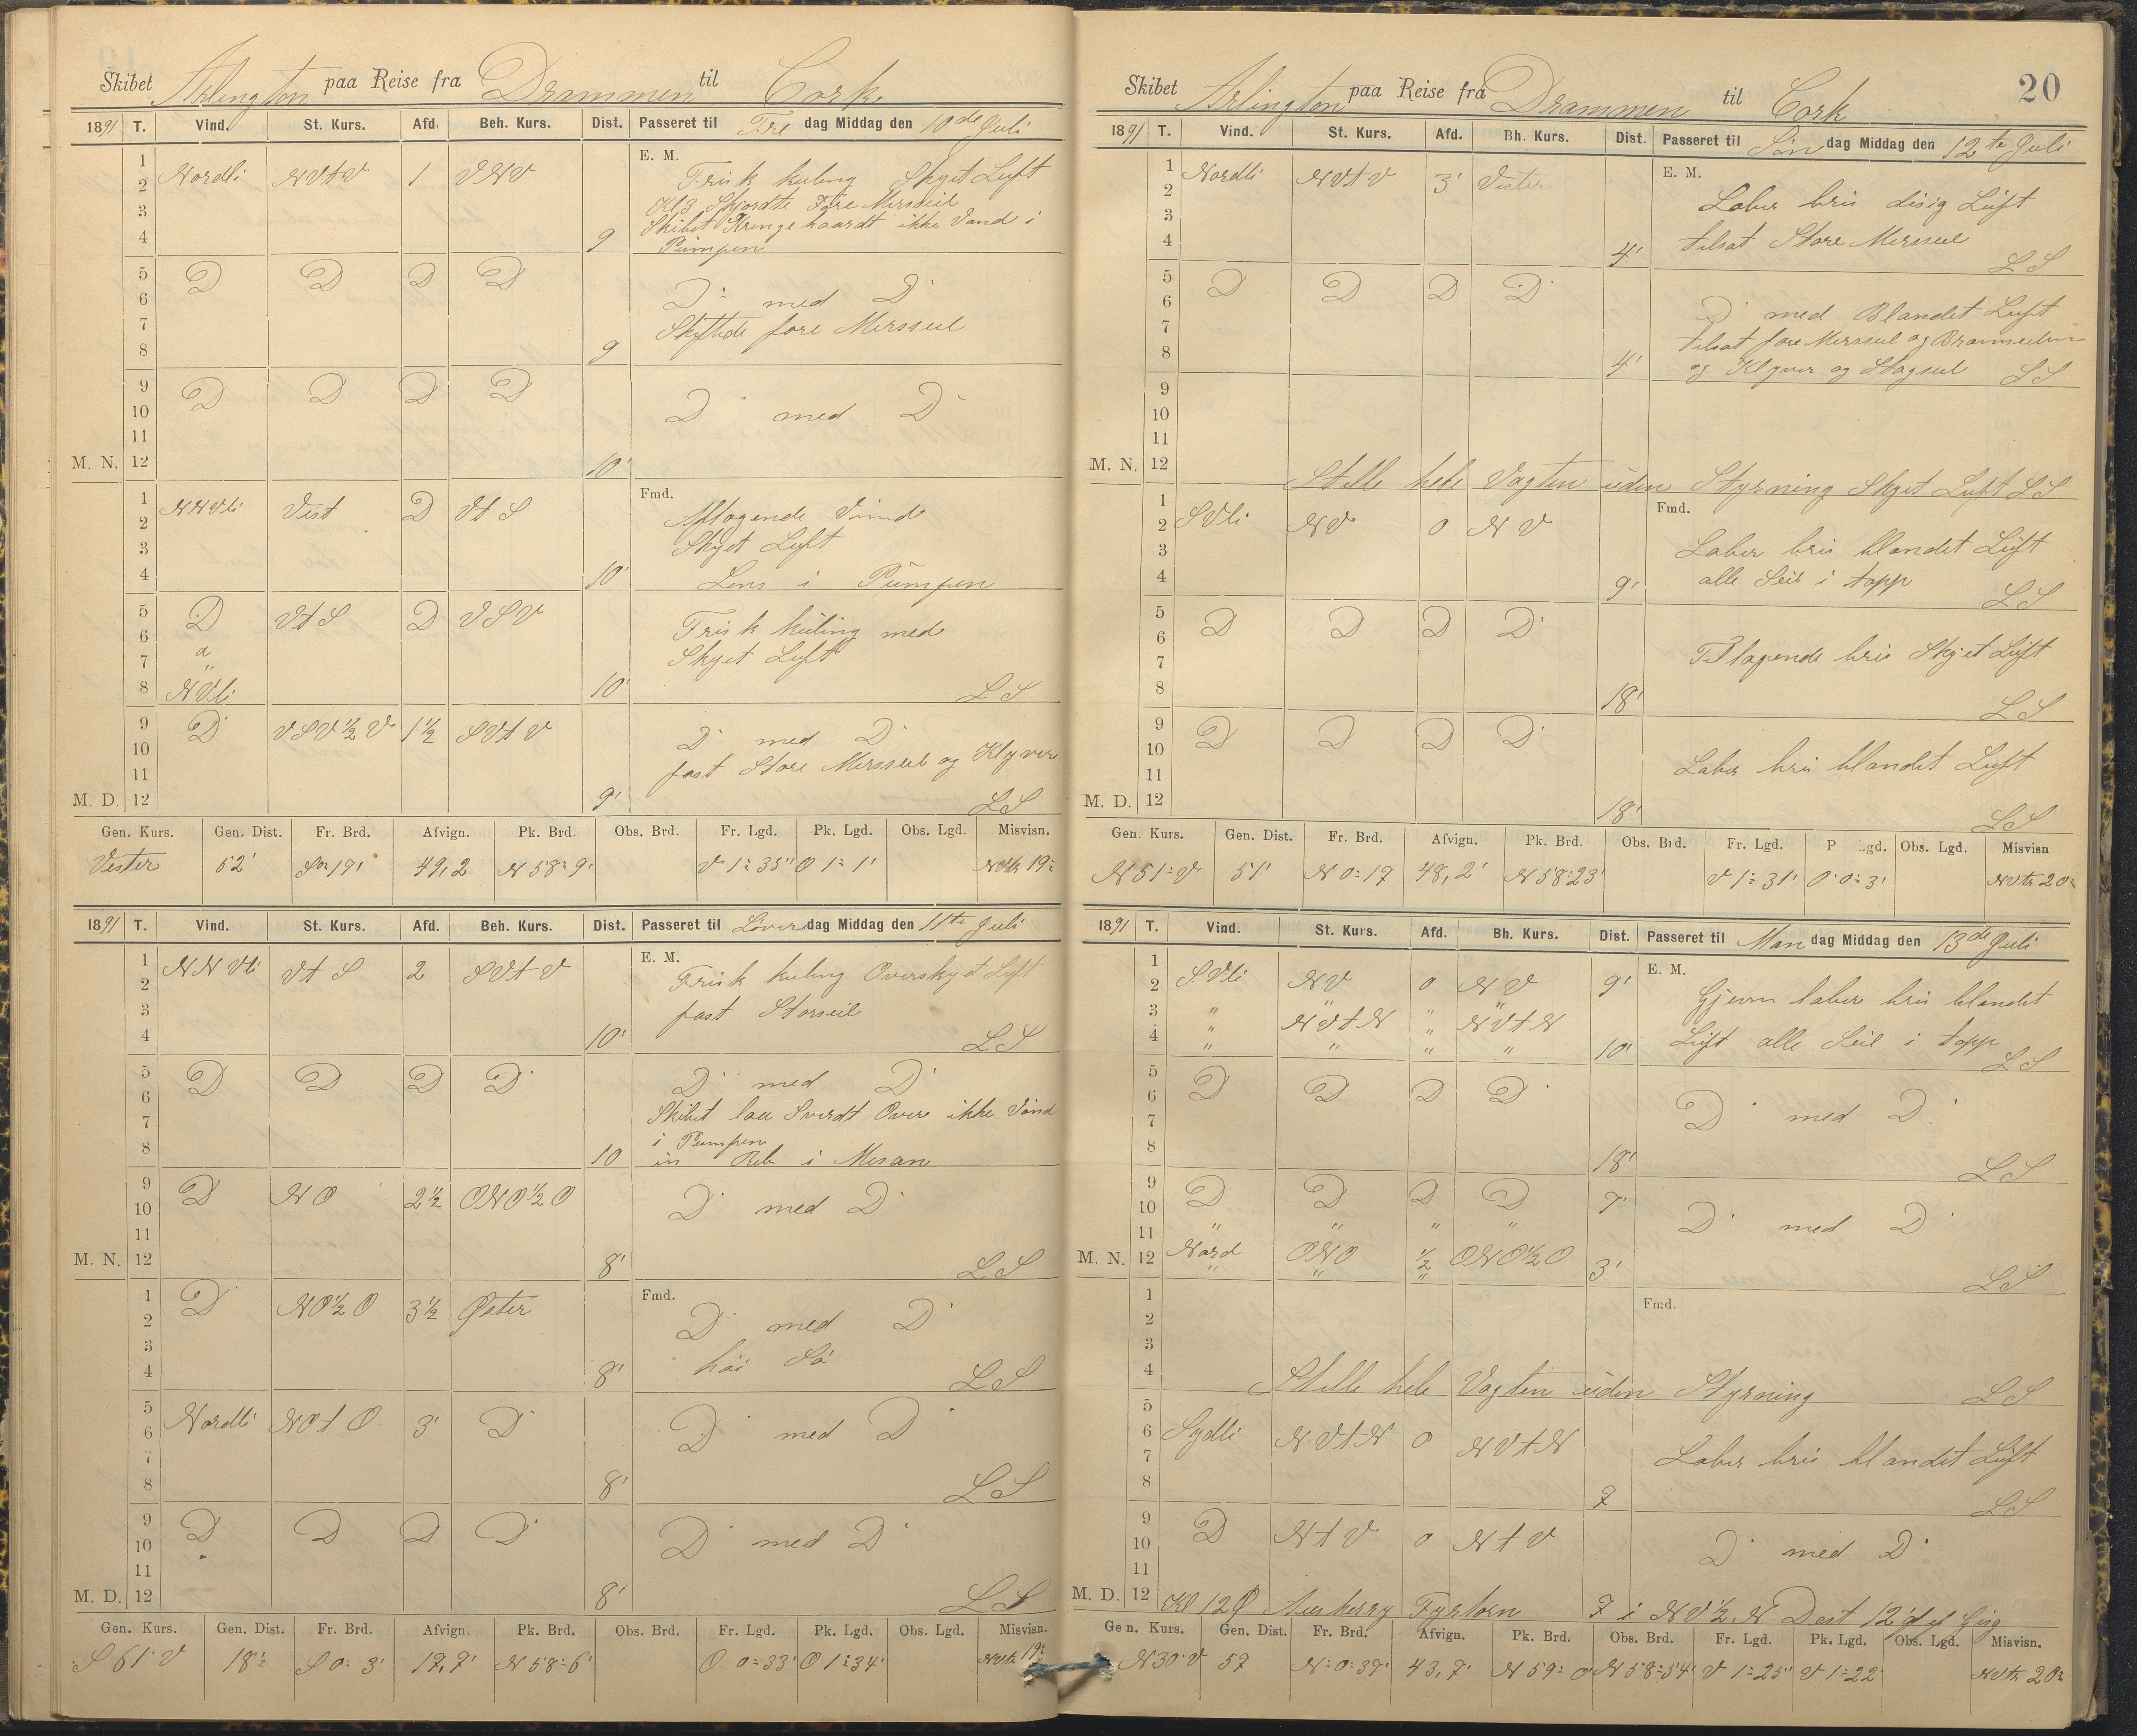 Skibet Arlington paa Reise fra Drammen til Cork
1891 T. Vind. St. Kurs. Afd. Beh. Kurs. Dist. Passeret til Fre dag Middag den 10de Juli
E. M.
1
2 Nordli NVtV 1 VNV Frisk kuling Skyet Luft
3 Kl 3 Skjørdte Fore Mersseil
Skibet Krenge haardt ikke Vand i
4 9 Pumpen
5 D D D D
6 D med D
7 Skiftede fore Mersseil
8 9
9 D D D D
10 D med D
11
M. N. 12 10'
Fmd.
1 NNVli Vest D VtS Aftagende Vind
2
3 Skyet Luft
4 10' Lens i Pumpen
5 D VtS D VSV
6 Frisk kuling med
7 " Skyet Luft
8 NVli 10' LS
9 D VSV½V 1½ SVtV
10 D med D
11 fast Store Mersseil og Klyver
M. D. 12 9' LS
Gen. Kurs. Gen. Dist. Fr. Brd. Afvign. Pk. Brd. Obs. Brd. Fr. Lgd. Pk. Lgd. Obs. Lgd. Misvisn.
Vester 52' 49,2 N 58° 9' V 1° 35' O 1° 1' 19°
1891 T. Vind. St. Kurs. Afd. Beh. Kurs. Dist. Passeret til Løver dag Middag den 11te Juli
E. M.
1 NNVli VtS 2 SVtV
2 Frisk kuling Overskyet Luft
3 fast Storseil
4 10' LS
5 D D D D
6 D med D
7 Skibet laa Sverdt Over ikke Vand
8 i Pumpen
10 in Reb i Mesan
9 D NO 2½ ONO½O
10 D med D
11
M. N. 12 8' LS
Fmd.
1 D NO½O 3½ Øster
2 D med D
3 høi Sø
4 8' LS
5
6 Nordli NOtO 3' D D med D
7
8 8' LS
9 D D D D
10 D med D
11
M. D. 12 8' LS
Gen. Kurs. Gen. Dist. Fr. Brd. Afvign. Pk. Brd. Obs. Brd. Fr. Lgd. Pk. Lgd. Obs. Lgd. Misvisn.
S 61° V 18½ S 0° 3' 17,7' N 58° 6' O 0° 33' O 1° 34' 19°
20
Skibet Arlington paa Reise fra Drammen til Cork
1891 T. Vind. St. Kurs. Afd. Bh. Kurs. Dist. Passeret til Søn dag Middag den 12te Juli
E. M.
1 Nordli NVtV 3' Vester
2 Laber bris disig Luft
3
4 4' tilsat Store Mersseil LS
5 D D D D
6 D med Blandet Luft
7 tilsat fore Mersseil og Bramseilene
8 4' og Klyver og Stagseil LS
9
10
11
M. N. 12 Stille hele Vagten uden Styrning Skyet Luft LS
Fmd.
1
2 SVli NV 0 NV
3 Laber bris blandet Luft
4 9' alle Seil i topp LS
5 D D D D
6
7 Tiltagende bris Skyet Luft
8 18' LS
9 D D D D
10
11 Laber bris blandet Luft
M. D. 12 18' LS
Gen. Kurs. Gen. Dist. Fr. Brd. Afvign. Pk. Brd. Obs. Brd. Fr. Lgd. P gd. Obs. Lgd. Misvisn
N 51° V 51' N 0° 17 48,2' N 58° 23' V 1° 31' O 0° 3' 20°
1891 T. Vind. St. Kurs. Afd. Bh. Kurs. Dist. Passeret til Man dag Middag den 13de Juli
E. M.
1
2 SVli NV 0 NV 9' Gjevn laber bris blandet
3 " NVtN " NVtN
4 " " " " 10' Luft alle Seil i topp LS
5 D D D D
6
7 D med D
8 18' LS
9 D D D D 7'
10 D med D
11 " " " "
M. N. 12 Nord ONO ½ ONO½O 3' LS
Fmd.
1
2
3
4 Stille hele Vagten uden Styrning LS
5
6 Sydli NVtN 0 NVtN
7 Laber bris blandet Luft
8 7 LS
9 D NtV 0 NtV
10 D med D
11
M. D. 12 Kl 12 Fyrtorn 7 i NV½N Dest 12'
Gen. Kurs. Gen. Dist. Fr. Brd. Afvign. Pk. Brd. Obs. Brd. Fr. Lgd. Pk. Lgd. Obs. Lgd. Misvisn.
N 30° V 57 N 0° 37' 43,7' N 59° 0' N 58° 54' V 1° 25' V 1° 22' 20°